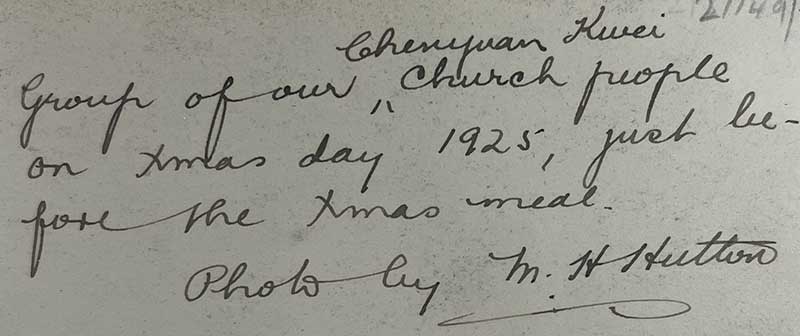 Chenyuan Kwei
Group of our " Church people
on Xmas day 1925, just be-
fore the Xmas meal.
Photo by M. H Hutton